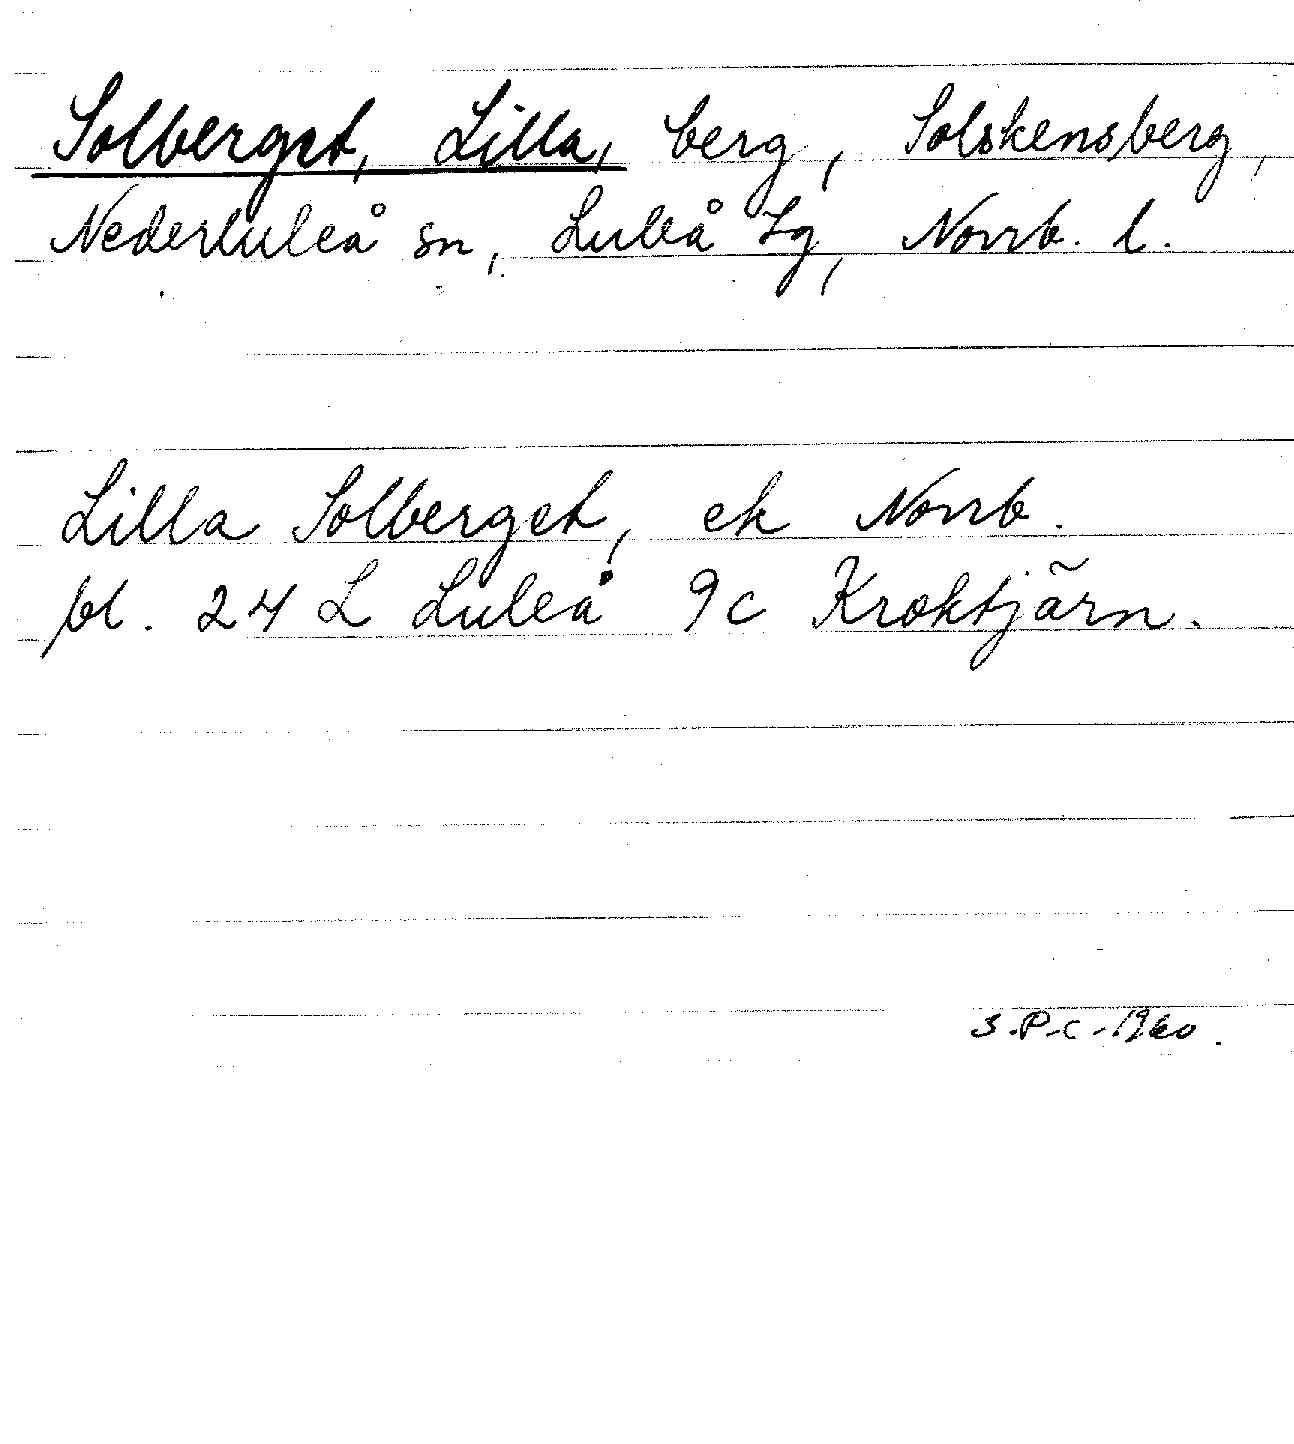 Solberget, Lilla, berg, Solskensberg,
Nederluleå sn, Luleå tg, Norrb. l.
Lilla Solberget, ek Norrb.
bl. 24 L Luleå 9c Kroktjärn.
S.P.C. 1960.